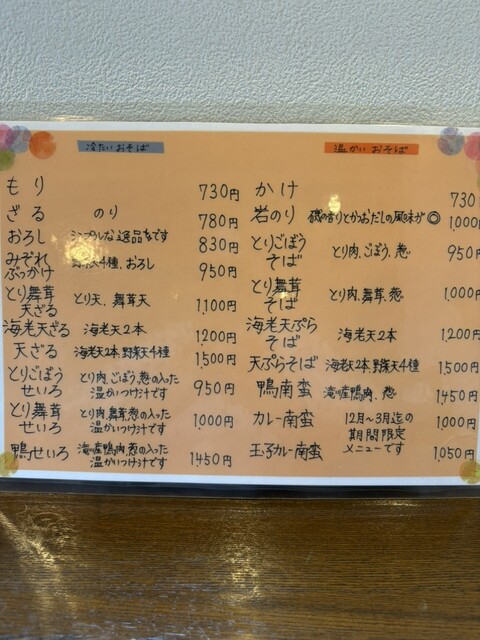 冷たいおそば
もり 730円
ざる のり 780円
おろし シンプルな逸品です 830円
みぞれ
ぶっかけ 野菜天4種、おろし 950円
とり舞茸
天ざる とり天、舞茸天 1,100円
海老天ざる 海老天2本 1200円
天ざる 海老天2本野菜天4種 1,500円
とりごぼう
せいろ とり肉、ごぼう、葱の入った
温かいつけ汁です 950円
とり舞茸
せいろ とり肉、舞茸、葱の入った
温かいつけ汁です 1,000円
鴨せいろ 滝ノ産鴨肉、葱の入った
温かいつけ汁です 1450円
温かいおそば
かけ 730
岩のり 磯の香りとかつおだしの風味が◎ 1,000円
とりごぼう
そば とり肉、ごぼう、葱 950円
とり舞茸
そば とり肉、舞茸、葱 1,000円
海老天ぷら
そば 海老天2本 1,200円
天ぷらそば 海老天2本野菜天4種 1500円
鴨南蛮 産鴨肉、葱 1450円
カレー南蛮 12月~3月迄の
期間限定
メニューです 1,000円
玉子カレー南蛮 1,050円